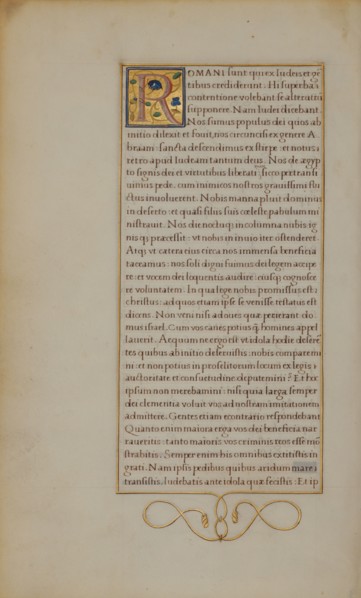 ROMANI sunt qui ex Iudeis et gẽ
tibus crediderunt. Hi superba
contentione volebant se alterutrũ
supponere. Nam Iudei dicebant.
Nos sumus populus dei quos ab
initio dilexit et fouit, nos circuncisi ex genere A
braam: sancta descendimus ex stirpe: et notus
retro apud Iudeam tantum deus. Nos de ægyp
to signis dei et virtutibus liberati siccopertransi
uimus pede. cum inimicos nostros grauissimi flu
ctus inuoluerent. Nobis manna pluit dominus
in deserto: et quasi filiis suis cœleste pabulum mi
nistrauit. Nos die noctuq; in columna nubis ig
nisq; præcessit: vt nobis in inuio iter ostenderet.
Atq; vt catera eius circa nos immensa beneficia
taceamus: nos soli digni fuimus dei legem accipe
re: et vocem dei loquentis audire: eiusq; cognosce
re voluntatem. In qua lege nobis promissus est:
christus: ad quos etiam ipse se venisse testatus est
dicens. Non veni nisi ad oues quæ perierant do
mus israel. Cum vos canes potius q̃ homines appel
lauerit. Aequum ne ergo est vt idola hodie deserẽ
tes quibus ab initio deseruistis: nobis comparemi
ni: et non potius in proselitorum locum ex legis
auctoritate et consuetudine deputemini? Et hoc
ipsum non merebamini: nisi quia larga semper
dei clementia voluit vos ad nostram imitationem
admittere. Gentes etiam econtrario respondebant
Quanto enim maiora erga vos dei beneficia nar
raueritis: tanto maioris vos criminis reos esse mõ
strabitis. Semper enim his omnibus extitistis in
grati. Nam ipsis pedibus quibus aridum mare
transistis, ludebatis ante idola quæ fecistis: Et ip